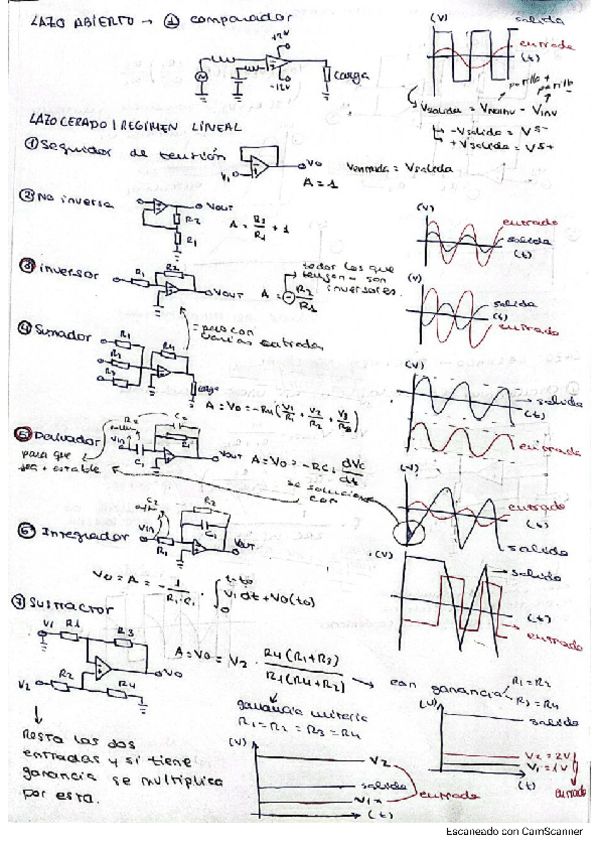 LAZO ABIERTO → ① comparador
+12V
-12V
carga
(V) salida
entrada
(t)
Vsalida = VNOINV - VINV
-Vsalida = VS-
+Vsalida = VS+
LAZO CERADO / REGIMEN LINEAL
① Seguidor de tensión
V1
VO
A = 1
Ventrada = Vsalida
② No inversa
VOUT
R2
R1
A = R2/R1 + 1
(V) entrada
salida
(t)
③ inversor
R1
R2
VOUT
A = - R2/R1
todos los que
tengan - son
inversores.
(V)
salida
(t)
entrada
= pero con
varias entradas
④ Sumador
R1
R2
R3
R4
carga
A = VO = -R4 (V1/R1 + V2/R2 + V3/R3)
(V)
salida
(t)
entrada
⑤ Derivador
para que
sea + estable
R2
C2
Vin
C1
R1
VOUT
A = VO = -RC1 dVc/dt
se soluciona
con
(V)
entrada
(t)
salida
⑥ Integrador
C2
Vin
R1
R2
C1
VOUT
VO = A = - 1/(R1·C1) · ∫ V1 dt + VO(t0)
(V)
salida
(t)
entrada
⑦ Sustractor
V1 R1 R3
VO
V2 R2 R4
A = VO = V2 · R4(R1+R3)/R1(R4+R2)
con ganancia
R1 = R2
R3 = R4
ganancia unitaria
R1 = R2 = R3 = R4
Resta las dos
entradas y si tiene
ganancia se multiplica
por esta.
(V)
V2
salida
V1
entrada
(t)
(V)
salida
V2 = 2V
V1 = 1V
(t)
entrada
Escaneado con CamScanner